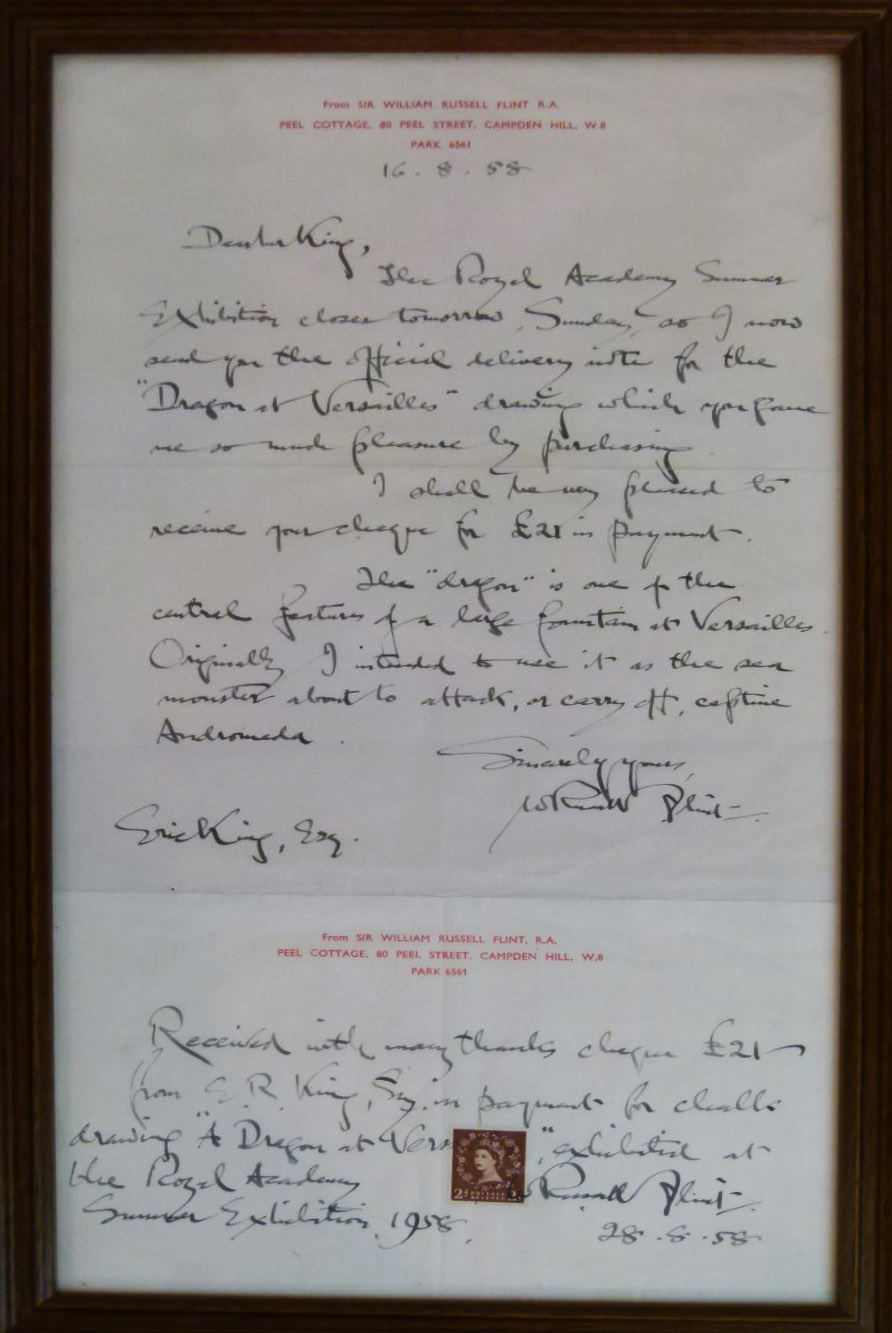 From SIR WILLIAM RUSSELL FLINT R.A
PEEL COTTAGE, 80 PEEL STREET, CAMPDEN HILL, W.8
PARK 6561
16 . 8 . 58
Dear Mr King,
The Royal Academy Summer
Exhibition closes tomorrow, Sunday, so I now
send you the official delivery note for the
"Dragon at Versailles" drawing which you gave
me so much pleasure by purchasing
I shall be very pleased to
receive your cheque for £21 in payment.
The "dragon" is one of the
central features of a large fountain at Versailles.
Originally I intended to use it as the sea
monster about to attack, or carry off, captive
Andromeda.
Sincerely yours,
W Russell Flint
Eric King, Esq.
From SIR WILLIAM RUSSELL FLINT, R.A.
PEEL COTTAGE, 80 PEEL STREET. CAMPDEN HILL, W.8
PARK 6561
Received with many thanks cheque £21
from E. R. King, Esq. in payment for chalk
drawing "A Dragon at Vers", exhibited at
the Royal Academy
Summer Exhibition, 1958.
W Russell Flint
28 . 8 . 58